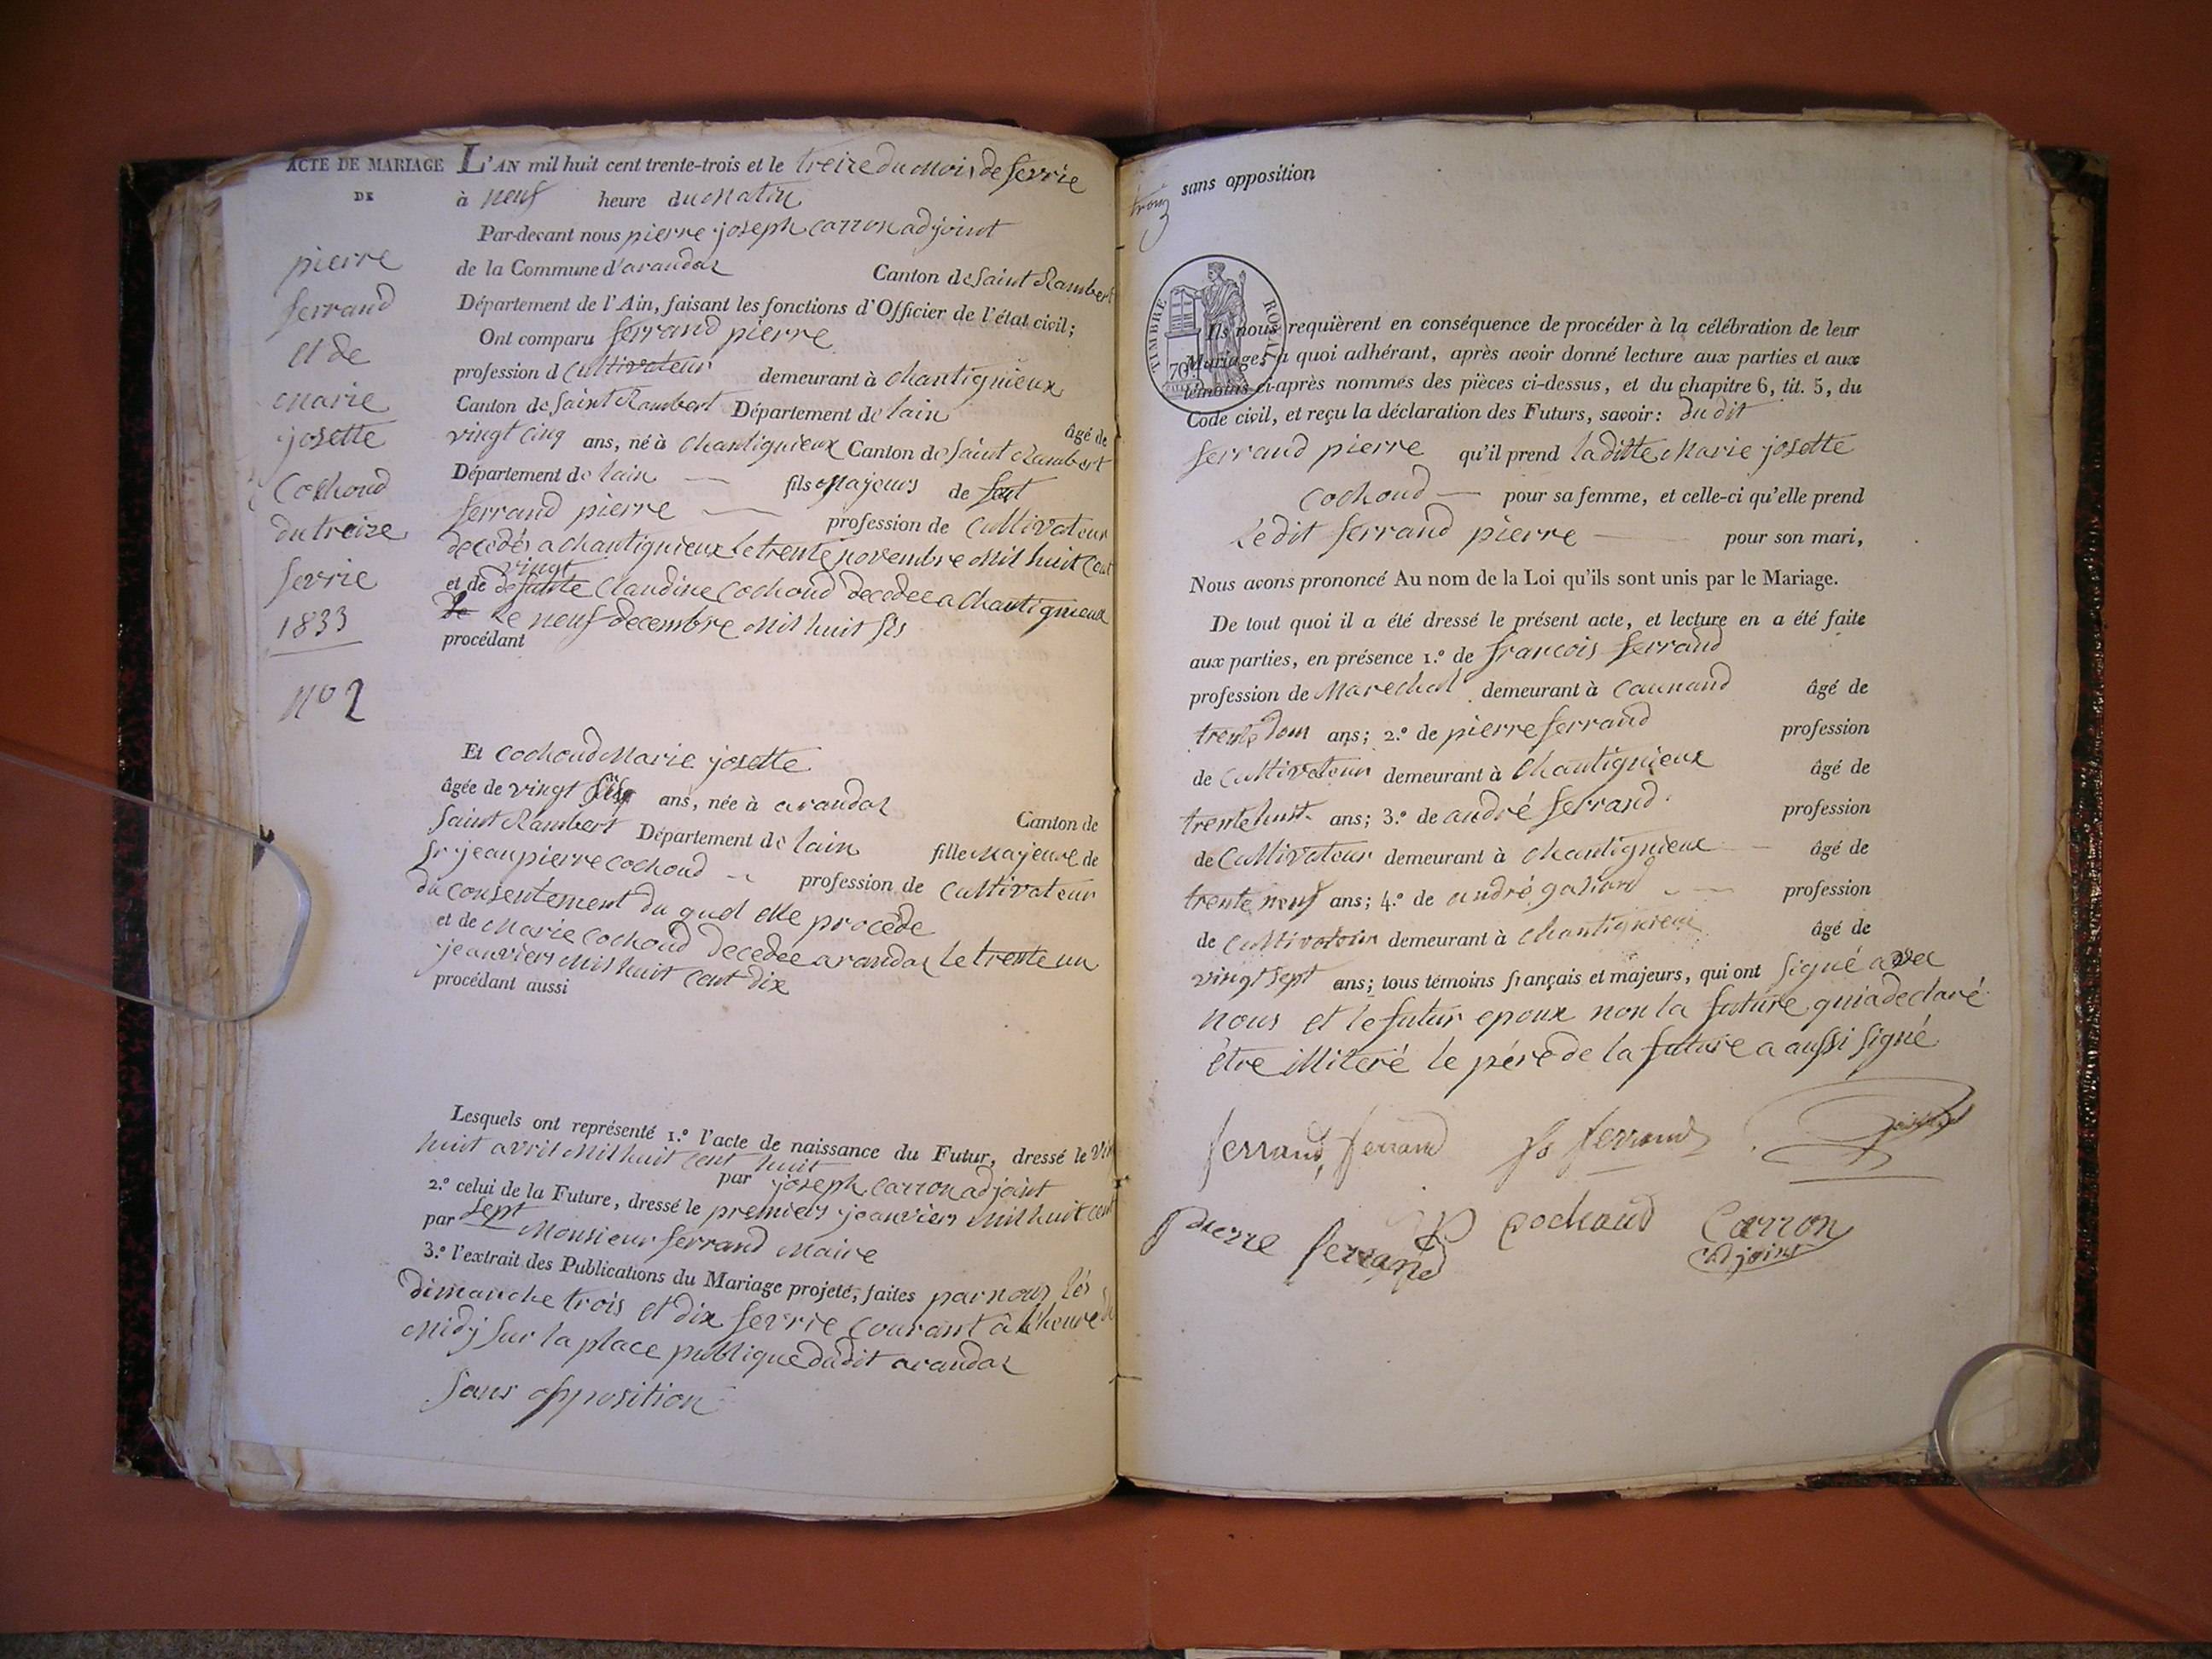 ACTE DE MARIAGE
DE
pierre
ferrand
et de
marie
josette
Cochoud
du treize
fevrie
1833
nº 2
L'AN mil huit cent trente-trois et le treize du mois de fevrie
à neuf heure du matin
Par-devant nous pierre joseph carron adjoint
de la Commune d'arandas Canton de Saint Rambert
Département de l'Ain, faisant les fonctions d'Officier de l'état civil;
Ont comparu ferrand pierre
profession d cultivateur demeurant à Chantignieux
Canton de Saint Rambert Département de lain âgé de
vingt cinq ans, né à Chantignieux Canton de Saint Rambert
Département de lain fils majeurs de
ferrand pierre profession de cultivateur
decedés a chantignieux le trente novembre mil huit cent
vingt
et de defunte Claudine Cochoud decedee a Chantignieux
le neuf decembre mil huit
procédant
Et cochoud Marie josette
âgée de vingt ans, née à arandas Canton de
Saint Rambert Département de lain fille majeure de
jean pierre cochoud profession de cultivateur
du consentement du quel elle procède
et de marie cochoud decedee a randas le trente un
jeanviers mil huit cent dix
procédant aussi
Lesquels ont représenté 1.º l'acte de naissance du Futur, dressé le
huit avril mil huit cent huit
par joseph carron adjoint
2.º celui de la Future, dressé le premiers jeanviers mil huit cent
sept
par Monsieur ferrand maire
3.º l'extrait des Publications du Mariage projeté, faites par nous lés
dimanche trois et dix fevrie courant à l'heure de
midy sur la place publique dudit arandas
sans opposition
sans opposition
TIMBRE ROYAL
70
Ils nous requièrent en conséquence de procéder à la célébration de leur
Mariage; à quoi adhérant, après avoir donné lecture aux parties et aux
témoins ci-après nommés des pièces ci-dessus, et du chapitre 6, tit. 5, du
Code civil, et reçu la déclaration des Futurs, savoir: du dit
ferrand pierre qu'il prend laditte Marie josette
cochoud pour sa femme, et celle-ci qu'elle prend
Ledit ferrand pierre pour son mari,
Nous avons prononcé Au nom de la Loi qu'ils sont unis par le Mariage.
De tout quoi il a été dressé le présent acte, et lecture en a été faite
aux parties, en présence 1.º de francois ferrand
profession de Marechal demeurant à âgé de
trente ans; 2.º de pierre ferrand profession
de Cultivateur demeurant à Chantignieux âgé de
trente huit ans; 3.º de andré ferrand profession
de Cultivateur demeurant à Chantignieux âgé de
trente neuf ans; 4.º de andré profession
de Cultivateur demeurant à Chantignieux âgé de
vingt sept ans; tous témoins français et majeurs, qui ont signé avec
nous et le futur epoux non la future qui a declaré
être illiteré le pére de la future a aussi signé
ferrand ferrand ferrand
pierre ferrand cochoud Carron
adjoint